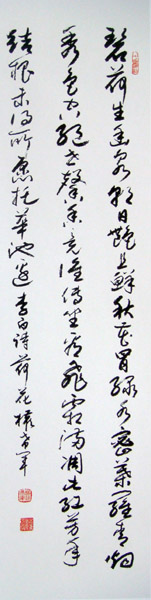 碧荷生幽泉朝日艳且鲜秋花冒绿水密叶罗青烟
秀色空绝世馨香竞谁传坐看飞霜满凋此红芳年
结根未得所愿托华池边李白诗荷花